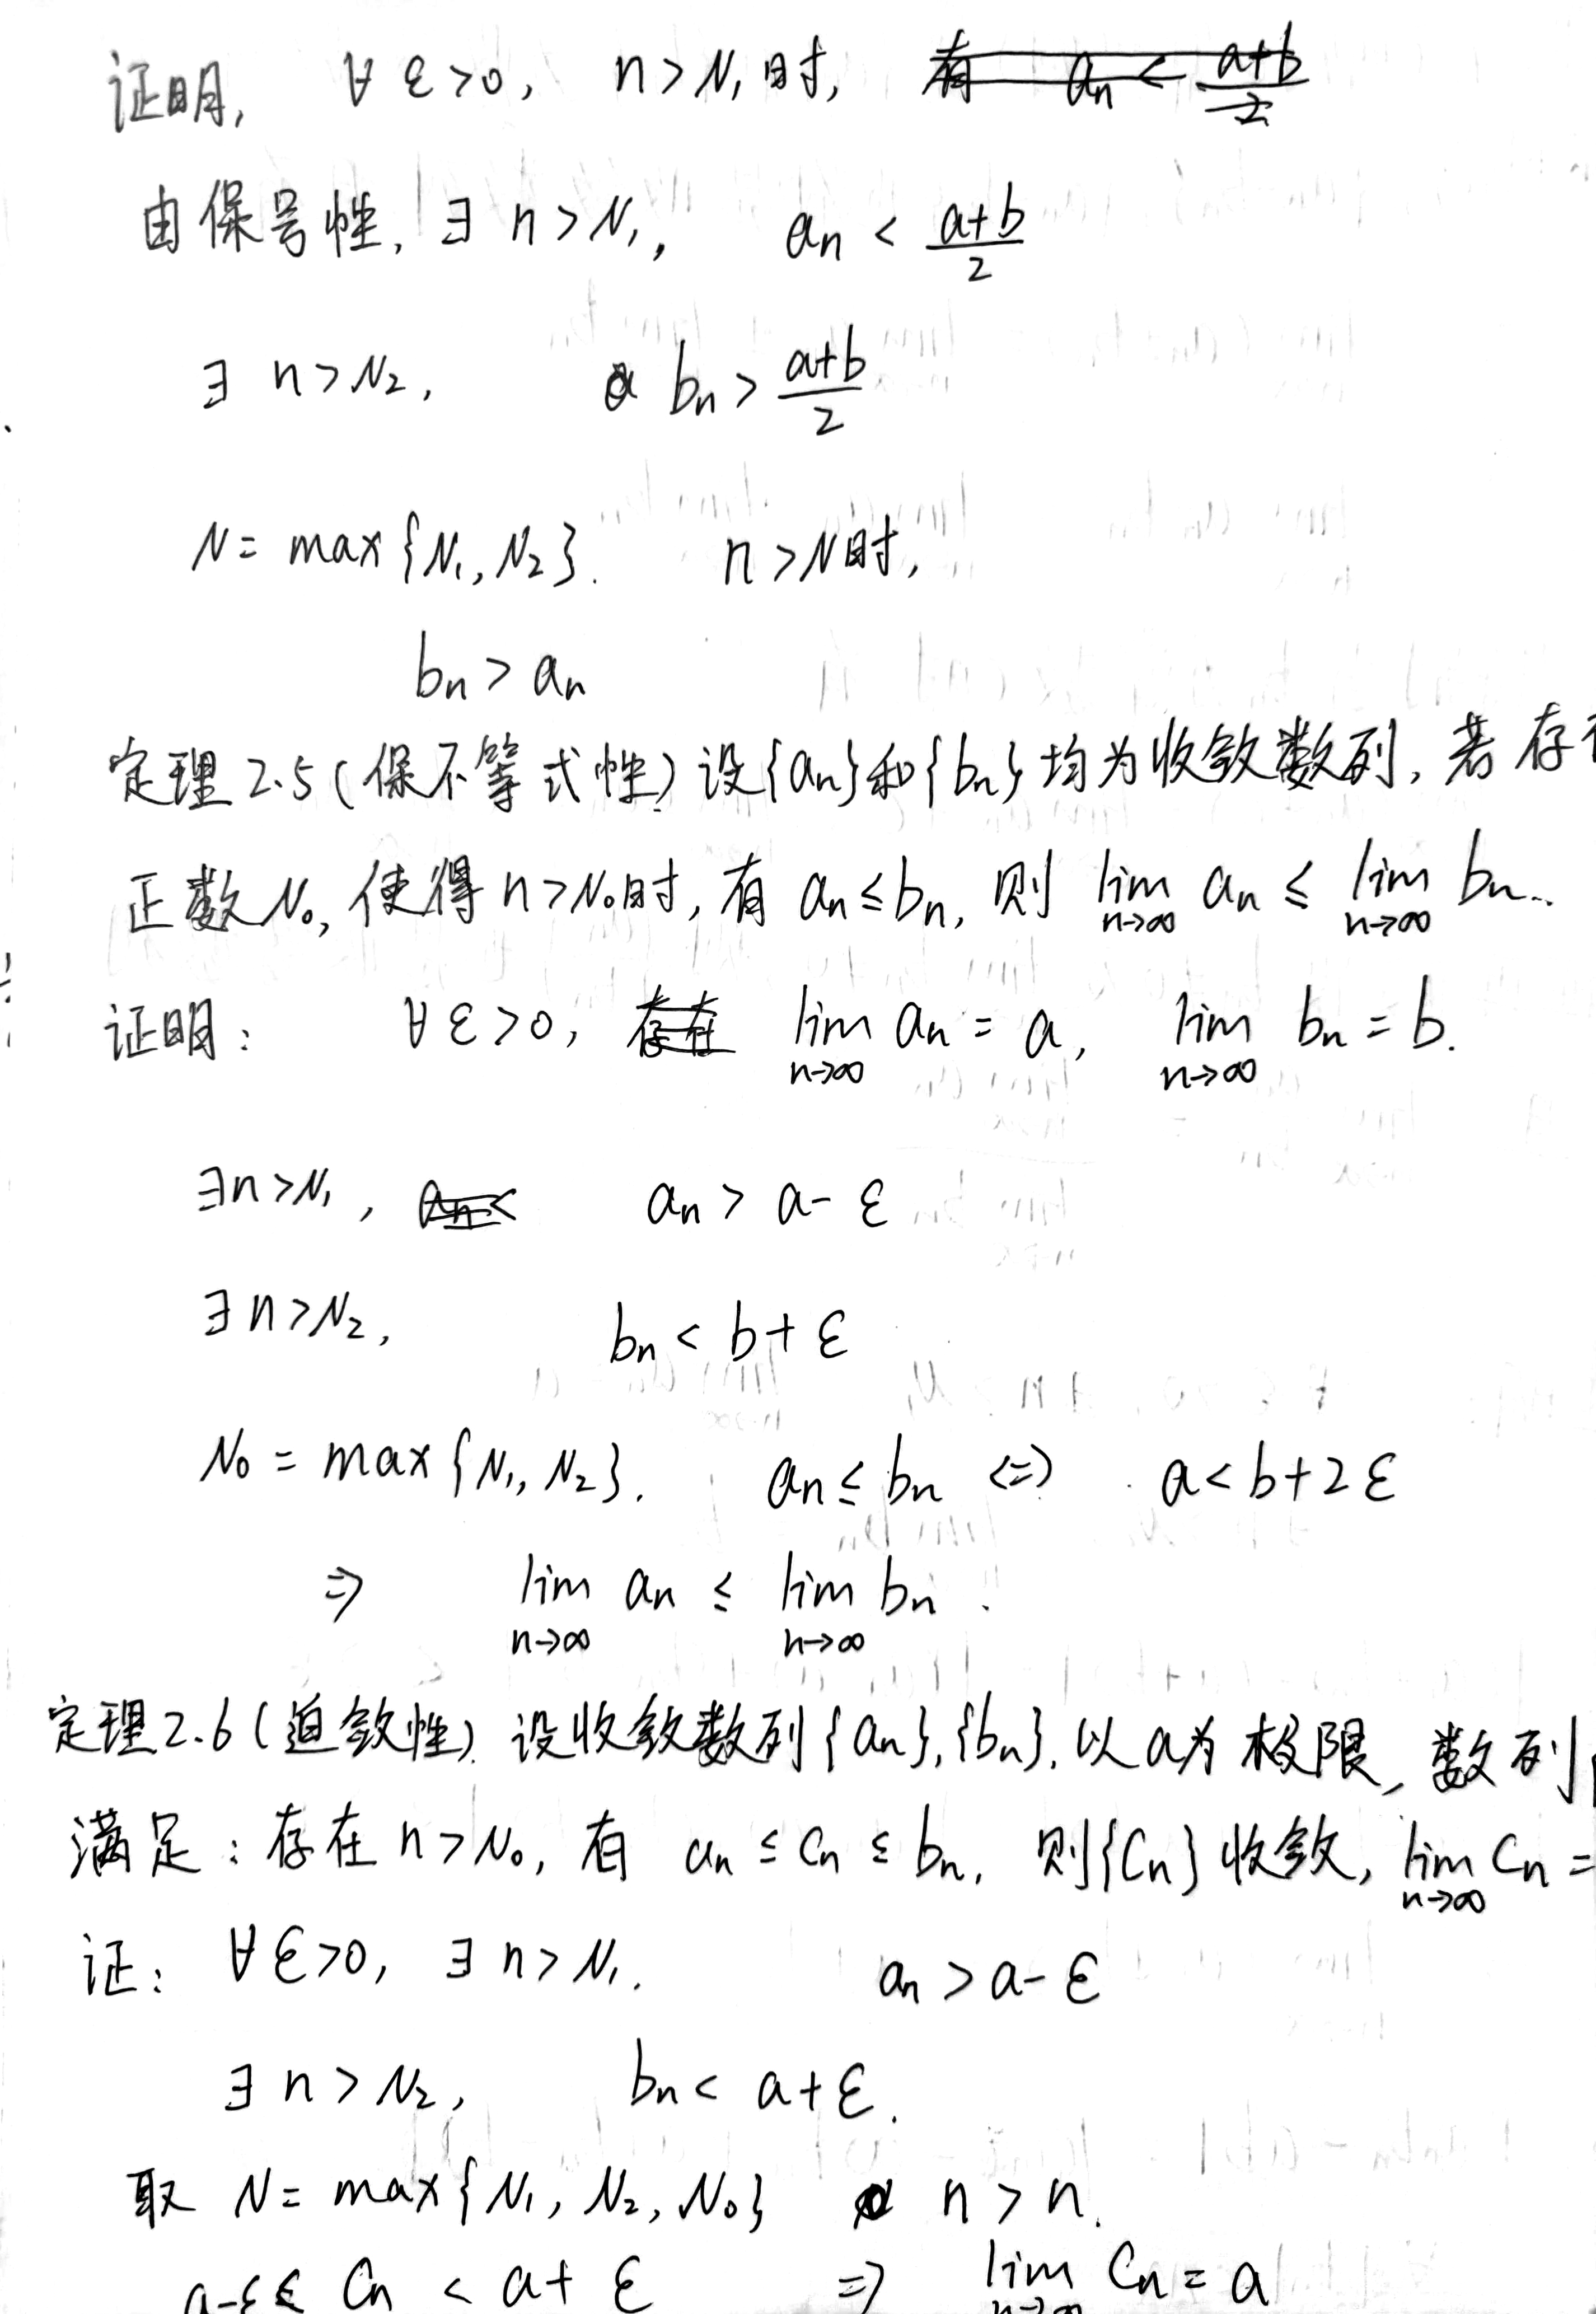 证明, ∀ ε>0, n>N₁时, 有 aₙ < (a+b)/2
由保号性, ∃ n>N₁, aₙ < (a+b)/2
∃ n>N₂, bₙ > (a+b)/2
N = max{N₁, N₂}. n>N时,
bₙ > aₙ
定理2.5(保不等式性)设{aₙ}和{bₙ}均为收敛数列, 若存
正数N₀, 使得n>N₀时, 有 aₙ≤bₙ, 则 lim n→∞ aₙ ≤ lim n→∞ bₙ.
证明: ∀ε>0, 存在 lim n→∞ aₙ = a, lim n→∞ bₙ = b.
∃n>N₁, aₙ< aₙ > a-ε
∃n>N₂, bₙ < b+ε
N₀ = max{N₁, N₂}. aₙ≤bₙ <=> a<b+2ε
⇒ lim n→∞ aₙ ≤ lim n→∞ bₙ.
定理2.6(迫敛性). 设收敛数列{aₙ},{bₙ}.以a为极限, 数列
满足:存在n>N₀, 有 aₙ≤cₙ≤bₙ, 则{Cₙ}收敛, lim n→∞ Cₙ =
证: ∀ε>0, ∃ n>N₁. aₙ>a-ε
∃ n>N₂, bₙ< a+ε.
取 N= max{N₁, N₂, N₀} n>n.
a-ε< Cₙ < a+ε ⇒ lim n→∞ Cₙ = a